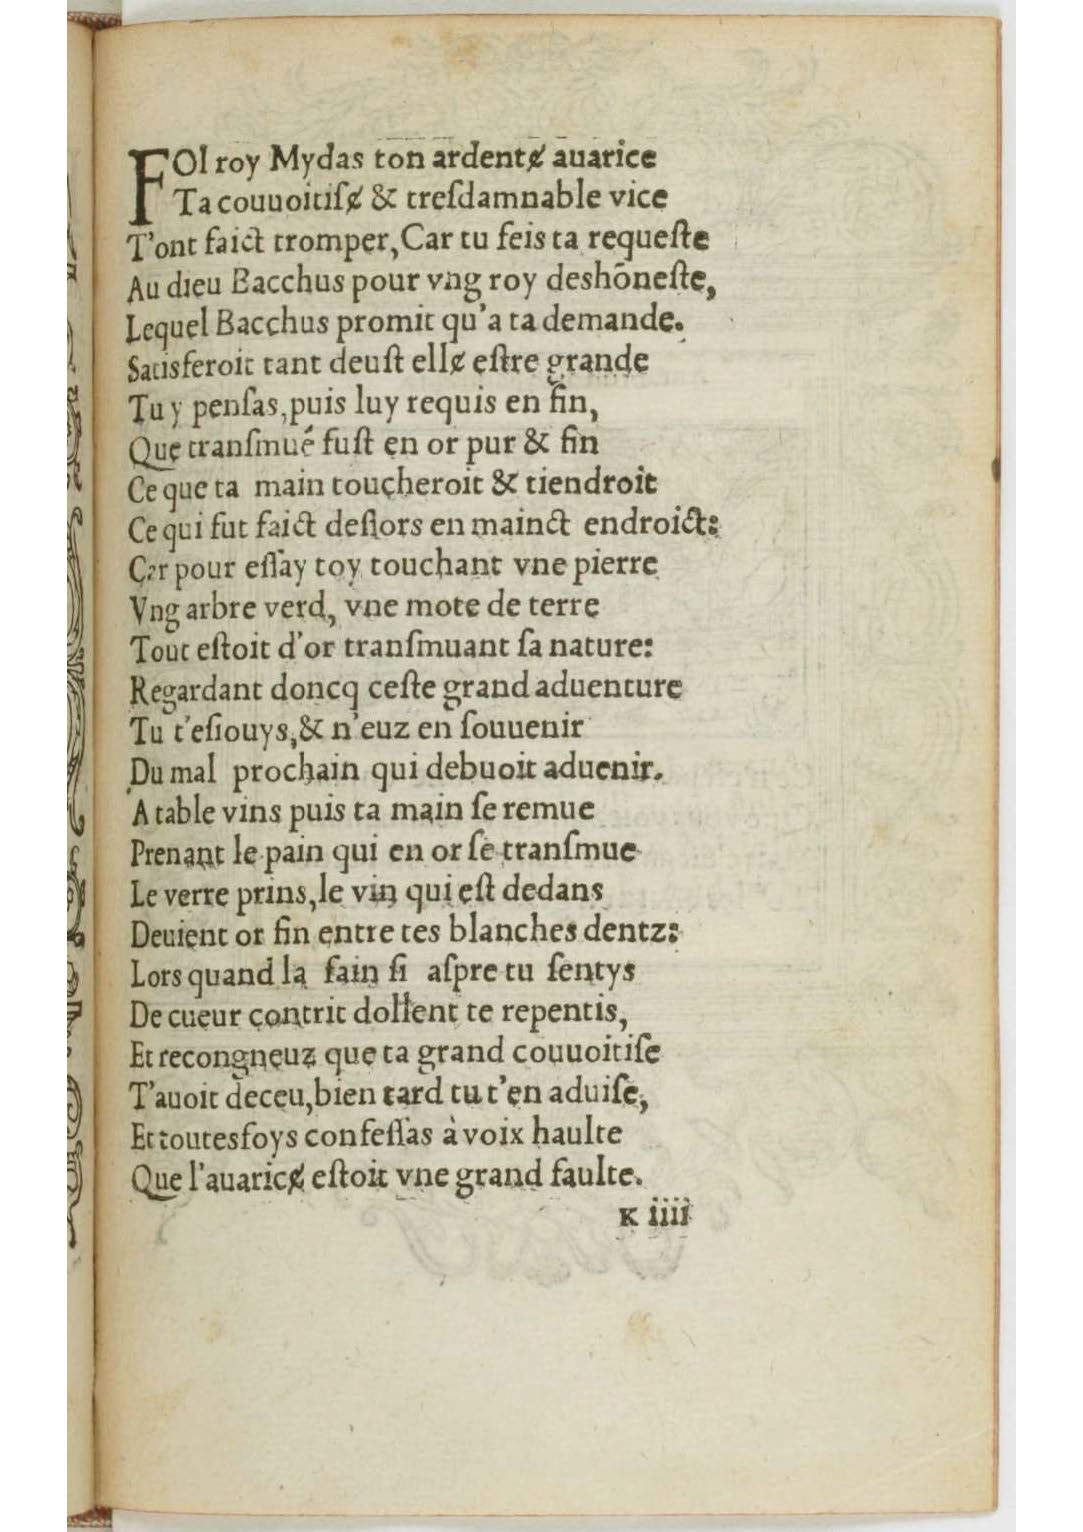 FOl roy Mydas ton ardentɇ auarice
Ta couuoitiſɇ & treſdamnable vice
T'ont faict tromper, Car tu feis ta requeſte
Au dieu Bacchus pour vng roy deshōneſte,
Lequel Bacchus promit qu'a ta demande.
Satisferoit tant deuſt ellɇ eſtre grande
Tu y penſas, puis luy requis en fin,
Que tranſmué fuſt en or pur & fin
Ce que ta main toucheroit & tiendroit
Ce qui fut faict deſlors en mainct endroict:
Car pour eſſay toy touchant vne pierre
Vng arbre verd, vne mote de terre
Tout eſtoit d'or tranſmuant ſa nature:
Regardant doncq ceſte grand aduenture
Tu t'eſiouys, & n'euz en ſouuenir
Du mal prochain qui debuoit aduenir.
A table vins puis ta main ſe remue
Prenant le pain qui en or ſe tranſmue
Le verre prins, le vin qui eſt dedans
Deuient or fin entre tes blanches dentz:
Lors quand la fain ſi aſpre tu ſentys
De cueur contrit dollent te repentis,
Et recongneuz que ta grand couuoitiſe
T'auoit deceu, bien tard tu t'en aduiſe,
Et toutesfoys confeſſas à voix haulte
Que l'auaricɇ eſtoit vne grand faulte.
K iiii